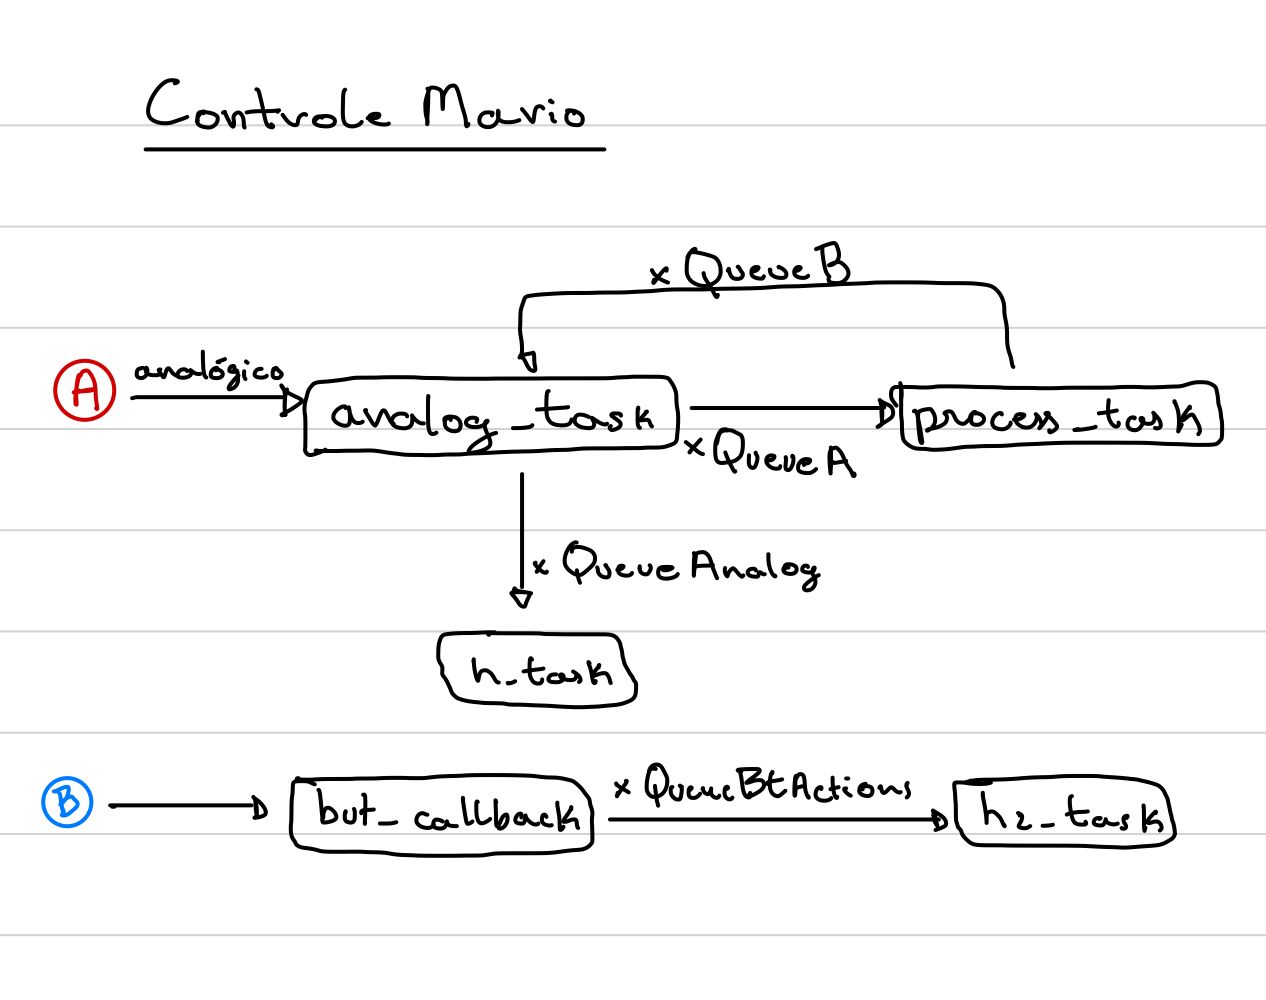 Controle Mario
xQueueB
A analógico
analog_task
process_task
xQueueA
xQueueAnalog
h_task
B
but_callback
xQueueBtActions
h2_task